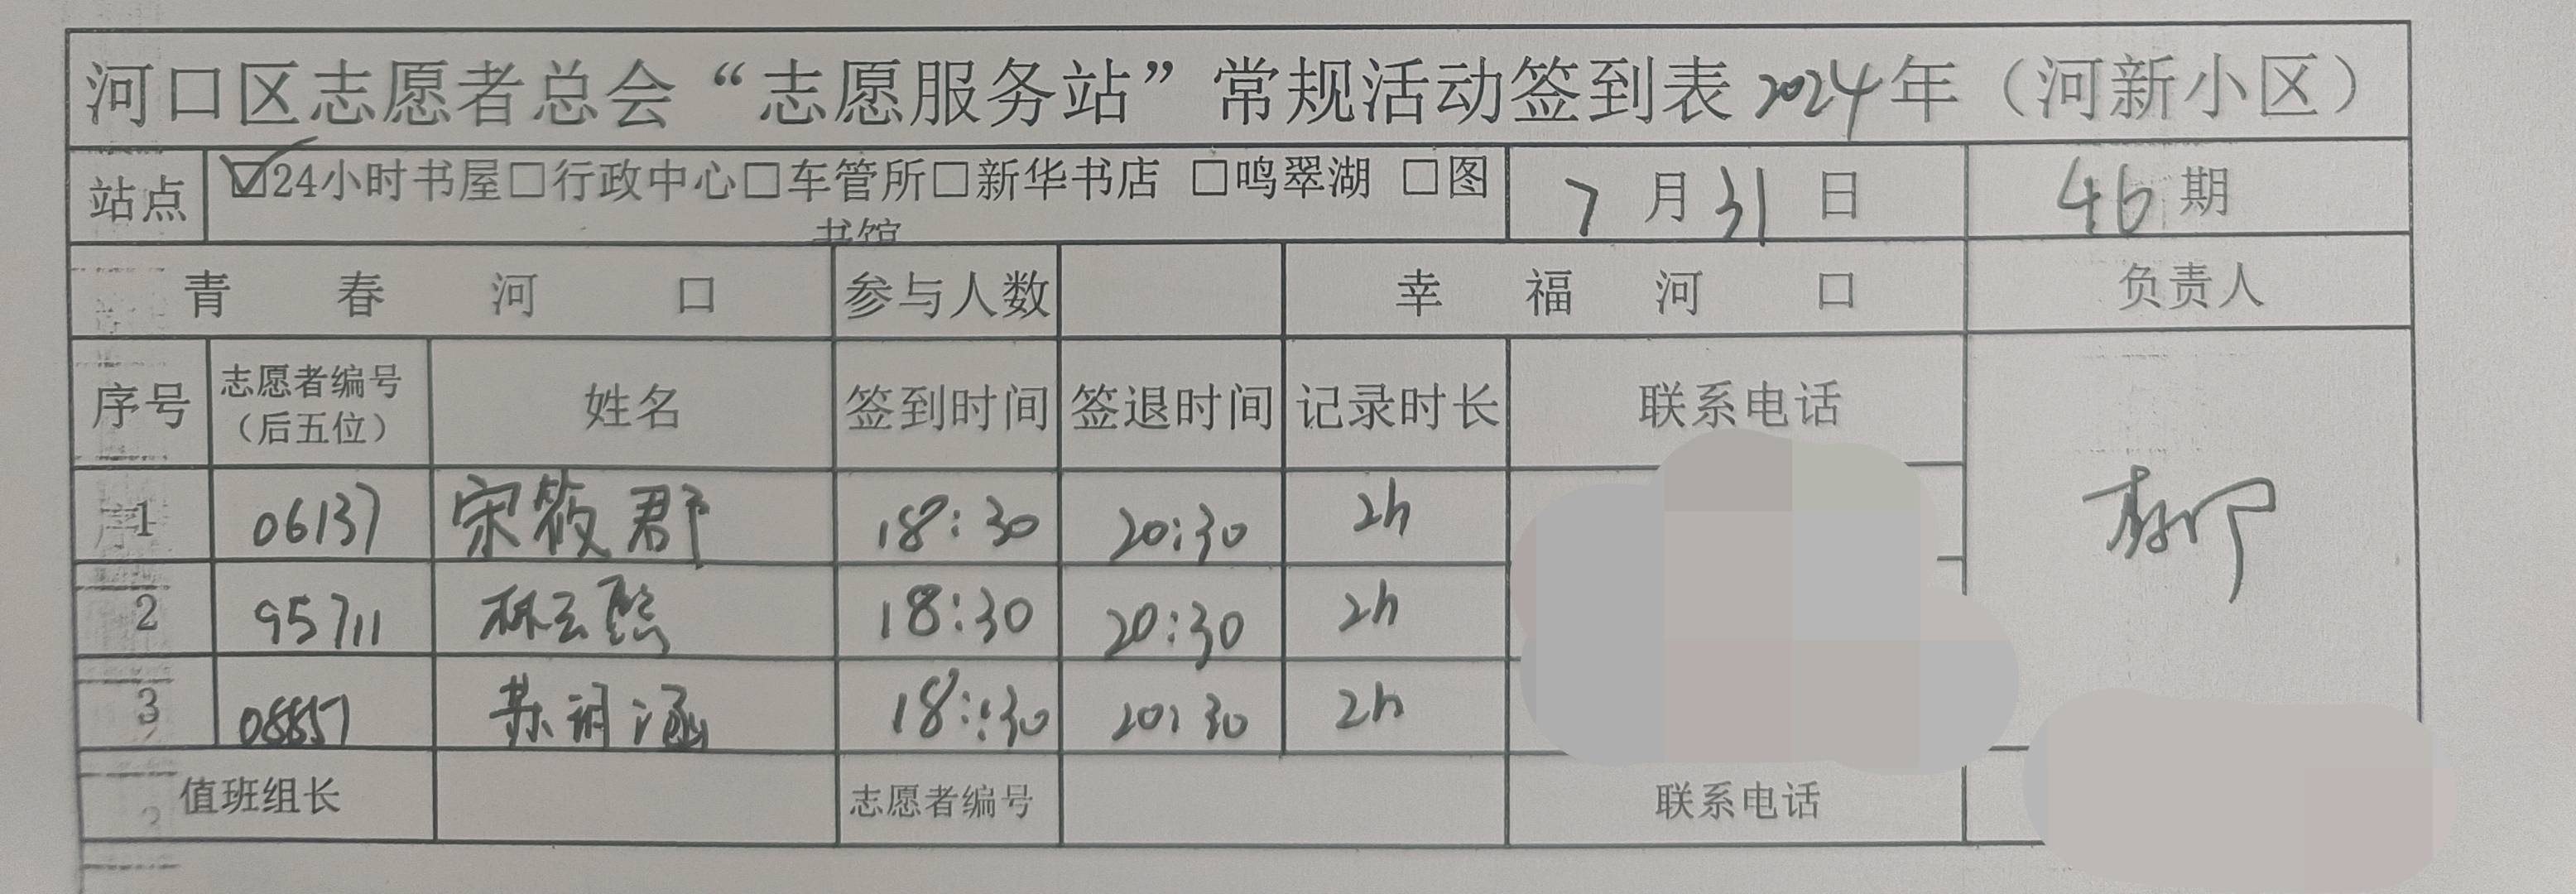 河口区志愿者总会“志愿服务站”常规活动签到表2024年（河新小区）
站点 ☑24小时书屋□行政中心□车管所□新华书店 □鸣翠湖 □图 7月31日 46期
书馆
青春河口 参与人数 幸福河口 负责人
序号 志愿者编号（后五位） 姓名 签到时间 签退时间 记录时长 联系电话
1 06137 宋筱郡 18:30 20:30 2h
2 95711 林云熙 18:30 20:30 2h
3 08857 苏诩涵 18:30 20:30 2h
值班组长 志愿者编号 联系电话